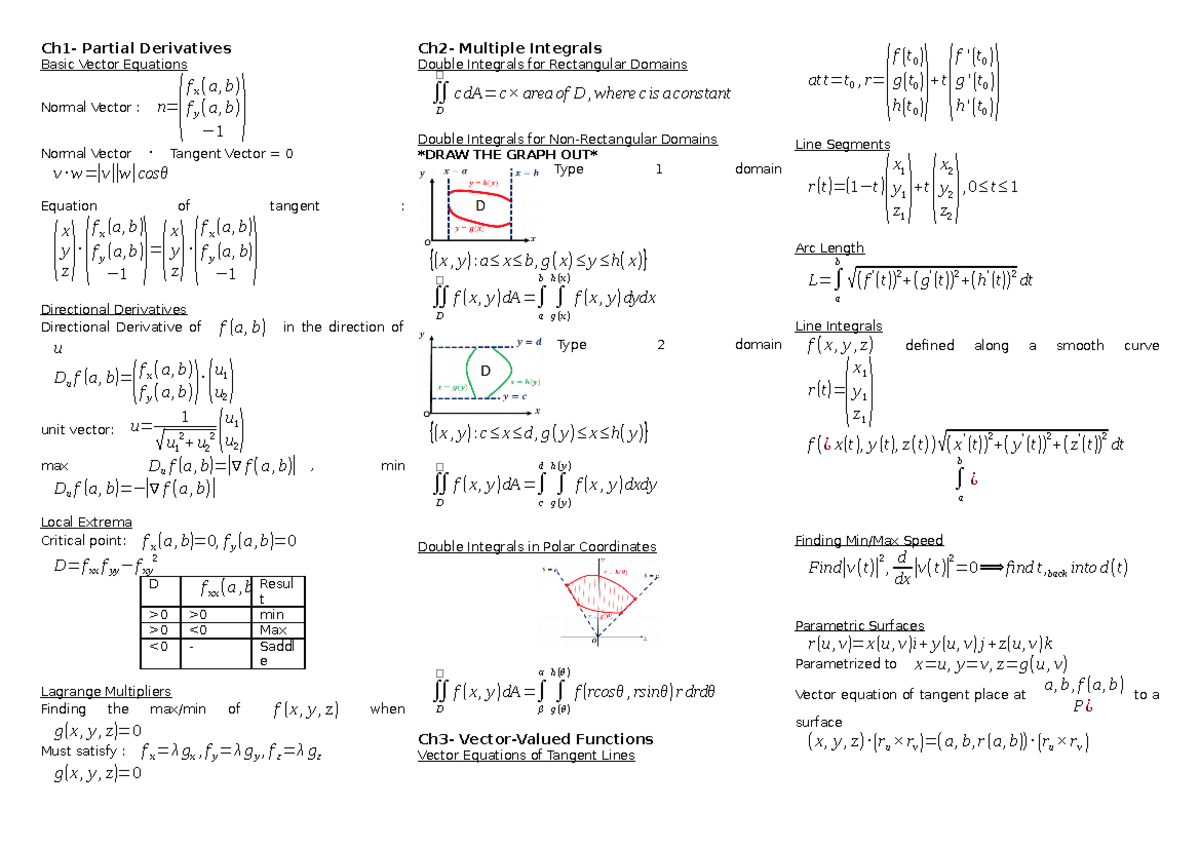 Ch1- Partial Derivatives
Basic Vector Equations
Normal Vector : n=(f_x(a,b) f_y(a,b) −1)
Normal Vector · Tangent Vector = 0
v·w=|v||w|cosθ
Equation of tangent :
(x y z)·(f_x(a,b) f_y(a,b) −1)=(x y z)·(f_x(a,b) f_y(a,b) −1)
Directional Derivatives
Directional Derivative of f(a,b) in the direction of
u
D_u f(a,b)=(f_x(a,b) f_y(a,b))·(u_1 u_2)
unit vector: u=1/√(u_1²+u_2²) (u_1 u_2)
max D_u f(a,b)=|∇f(a,b)| , min
D_u f(a,b)=−|∇f(a,b)|
Local Extrema
Critical point: f_x(a,b)=0, f_y(a,b)=0
D=f_xx f_yy−f_xy²
D f_xx(a,b Resul
t
>0 >0 min
>0 <0 Max
<0 - Saddl
e
Lagrange Multipliers
Finding the max/min of f(x,y,z) when
g(x,y,z)=0
Must satisfy : f_x=λg_x, f_y=λg_y, f_z=λg_z
g(x,y,z)=0
Ch2- Multiple Integrals
Double Integrals for Rectangular Domains
∬_D^□ c dA=c× area of D, where c is a constant
Double Integrals for Non-Rectangular Domains
*DRAW THE GRAPH OUT*
Type 1 domain
y x = a x = b
y = h(x)
D
y = g(x)
O x
{(x,y):a≤x≤b,g(x)≤y≤h(x)}
∬_D^□ f(x,y)dA=∫_a^b ∫_g(x)^h(x) f(x,y)dydx
Type 2 domain
y y = d
D
x = g(y) x = h(y)
y = c
O x
{(x,y):c≤x≤d,g(y)≤x≤h(y)}
∬_D^□ f(x,y)dA=∫_c^d ∫_g(y)^h(y) f(x,y)dxdy
Double Integrals in Polar Coordinates
r = h(θ)
r = g(θ)
O
∬_D^□ f(x,y)dA=∫_β^α ∫_g(θ)^h(θ) f(rcosθ,rsinθ)r drdθ
Ch3- Vector-Valued Functions
Vector Equations of Tangent Lines
at t=t_0, r=(f(t_0) g(t_0) h(t_0))+t(f'(t_0) g'(t_0) h'(t_0))
Line Segments
r(t)=(1−t)(x_1 y_1 z_1)+t(x_2 y_2 z_2), 0≤t≤1
Arc Length
L=∫_a^b √((f'(t))²+(g'(t))²+(h'(t))²) dt
Line Integrals
f(x,y,z) defined along a smooth curve
r(t)=(x_1 y_1 z_1)
f(¿x(t),y(t),z(t))√((x'(t))²+(y'(t))²+(z'(t))²) dt
∫_a^b ¿
Finding Min/Max Speed
Find|v(t)|², d/dx|v(t)|²=0⟹find t,_back into d(t)
Parametric Surfaces
r(u,v)=x(u,v)i+y(u,v)j+z(u,v)k
Parametrized to x=u, y=v, z=g(u,v)
Vector equation of tangent place at a,b,f(a,b) P¿ to a
surface
(x,y,z)·(r_u×r_v)=(a,b,r(a,b))·(r_u×r_v)